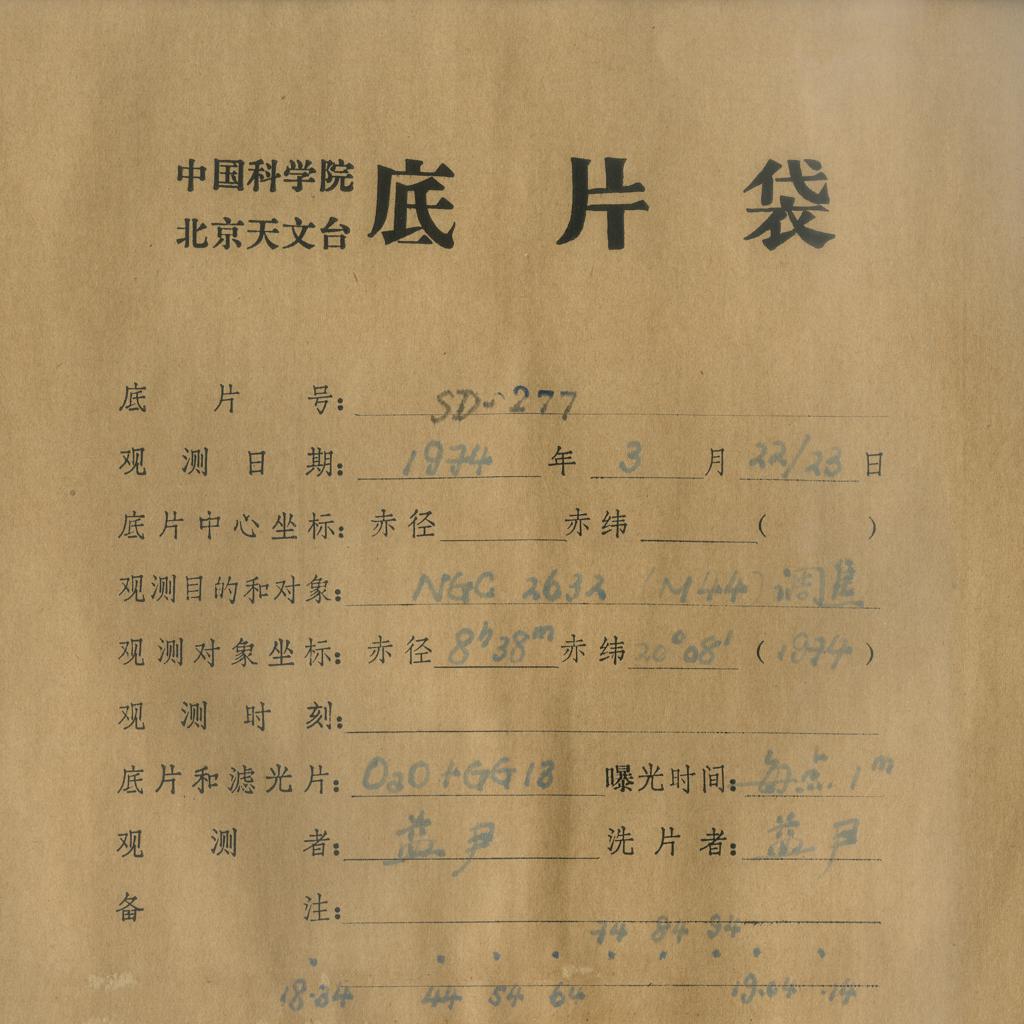 中国科学院
北京天文台
底片袋
底片号: SD-277
观测日期: 1974 年 3 月 22/23 日
底片中心坐标: 赤径 赤纬 ( )
观测目的和对象: NGC 2632 (M44) 调焦
观测对象坐标: 赤径 8h38m 赤纬 20°08' (1974)
观测时刻:
底片和滤光片: OaO+GG13 曝光时间: 每点 1m
观测者: 蓝 尹 洗片者: 蓝 尹
备注:
74 84 94
18.34 44 54 64 19.04 .14